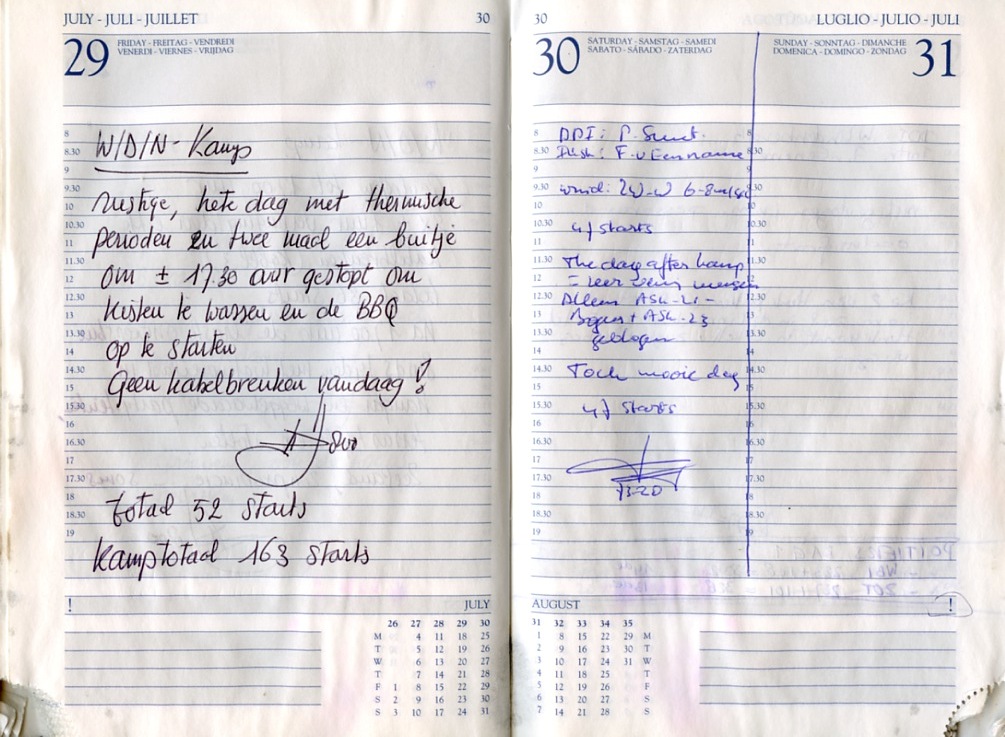 JULY - JULI - JUILLET 30
29 FRIDAY - FREITAG - VENDREDI
VENERDI - VIERNES - VRIJDAG
8
8.30
9
9.30
10
10.30
11
11.30
12
12.30
13
13.30
14
14.30
15
15.30
16
16.30
17
17.30
18
18.30
19
W/D/N-Kamp
rustige, hete dag met thermische
perioden en twee maal een buitje
om ± 17.30 uur gestopt om
kisten te wassen en de BBQ
op te starten
Geen kabelbreuken vandaag!
totaal 52 starts
kamptotaal 163 starts
! JULY
26 27 28 29 30
M 4 11 18 25
T 5 12 19 26
W 6 13 20 27
T 7 14 21 28
F 1 8 15 22 29
S 2 9 16 23 30
S 3 10 17 24 31
30 LUGLIO - JULIO - JULI
30 SATURDAY - SAMSTAG - SAMEDI
SABATO - SÁBADO - ZATERDAG
SUNDAY - SONNTAG - DIMANCHE
DOMENICA - DOMINGO - ZONDAG 31
8
8.30
9
9.30
10
10.30
11
11.30
12
12.30
13
13.30
14
14.30
15
15.30
16
16.30
17
17.30
18
18.30
19
DDI: P. Smet.
F. v Eename
wind: ZW-W 6-8
47 starts
The day after kamp
= zeer weinig mensen
Alleen ASK-21 -
+ ASK-23
gevlogen
Toch mooie dag
47 starts
AUGUST !
31 32 33 34 35
1 8 15 22 29 M
2 9 16 23 30 T
3 10 17 24 31 W
4 11 18 25 T
5 12 19 26 F
6 13 20 27 S
7 14 21 28 S